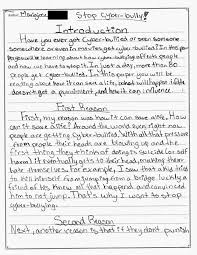 Author: Marlajore
Stop cyber-bully!
Introduction
Have you ever got cyber-bullied or seen someone
somewhere or even in movies get cyber-bullied? In this pa-
you will be learning about how cyber-bullying affects people
and why we have to stop it. In just a day, more than 80
people get cyber-bullied. In this paper you will be
reading about how it can save a life, what happens if it
doesn't get a punishment and how it can influence.
First Reason
First, my reason was how it can save a life. How
can it save a life? Around the world even right now
people are getting cyber-bullied. With all that pressure
from people their heads are blowing up and the
first thing they think of doing is suicide (or self
harm) it eventually gets to their head, making them
hate themselves. For example, I saw that a kid tries
to kill himself from jumping from a bridge luckily a
friend of his knew all that happened and convinced
him to not jump. That's why I want to stop
cyber-bullying.
Second Reason
Next, another reason is that if they don't punish